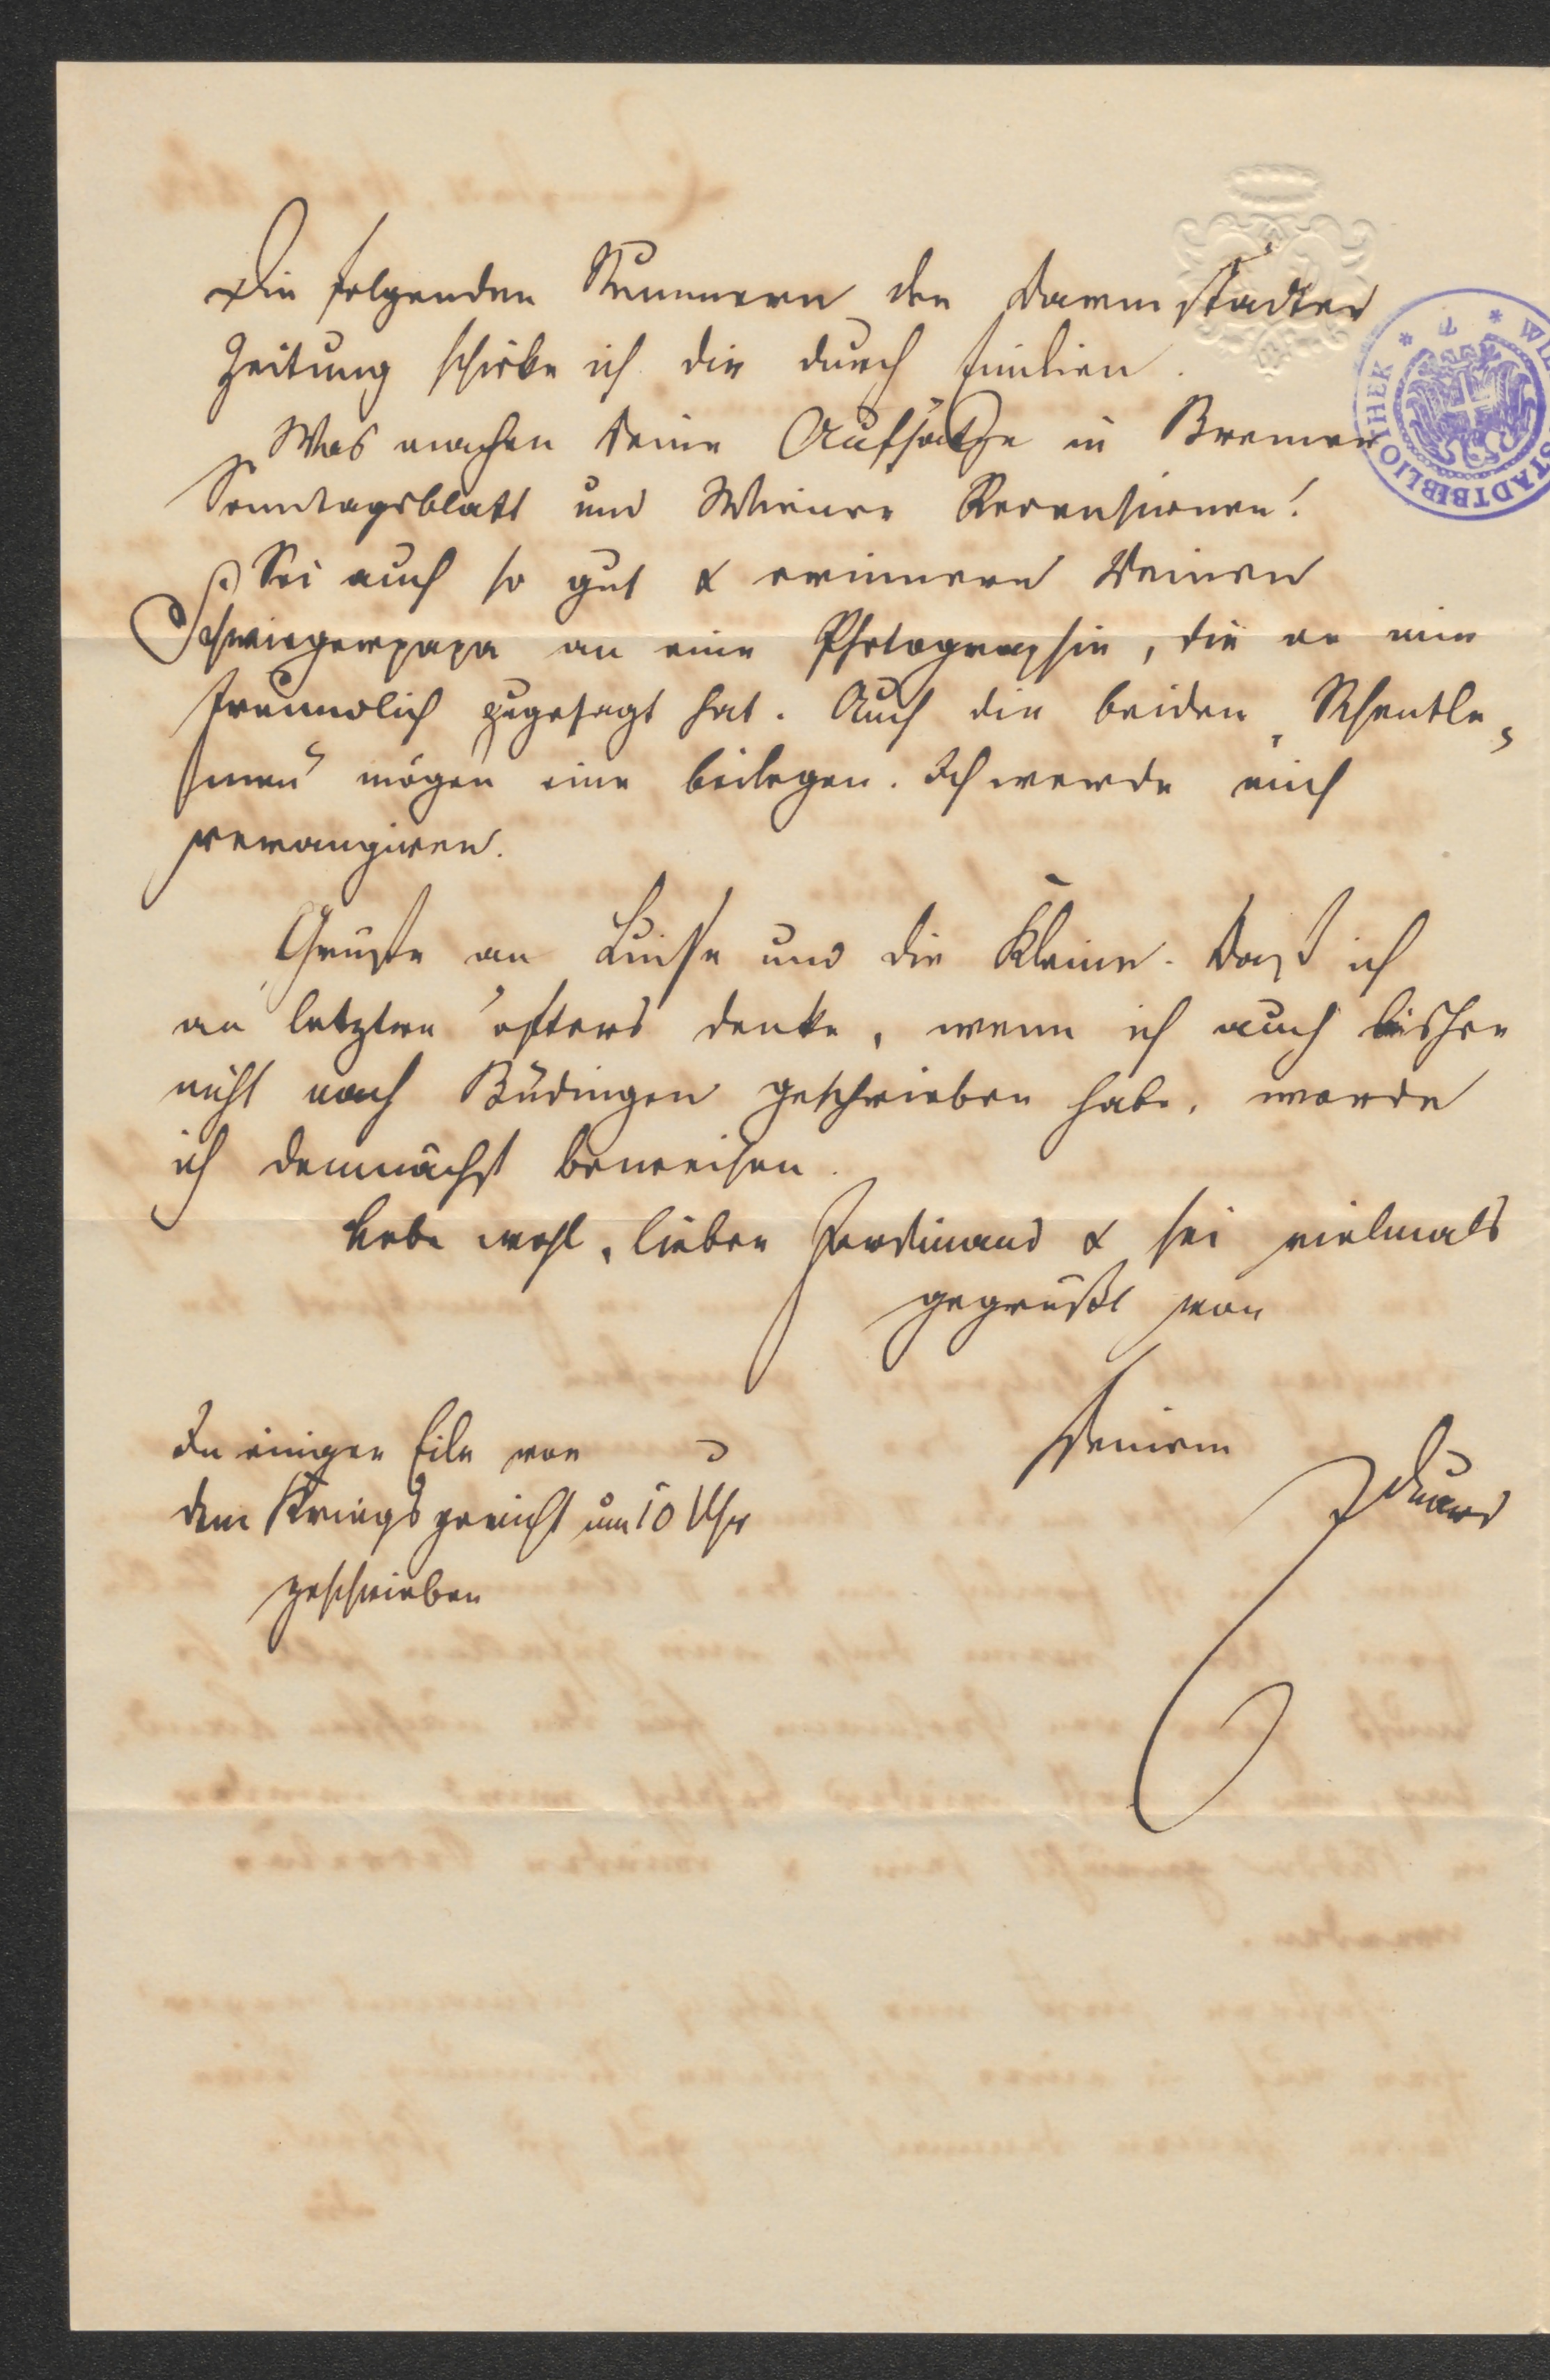 Die folgenden Nummern der Darmstädter
Zeitung schicke ich Dir durch Emilien.
Was machen Deine Aufsätze in Bremer
Sonntagsblatt und Wiener Recensionen!
Sei auch so gut & erinnere Deinen
Schwiegerpapa an eine Photographie, die er mir
freundlich zugesagt hat. Auch die beiden „Schentle-
men“ mögen eine beilegen. Ich werde mich
revangiren.
Grüße an Luise und die Kleine. Daß ich
an letztere öfters denke, wenn ich auch bisher
nicht nach Büdingen geschrieben habe, werde
ich demnächst beweisen.
Lebe wohl, lieber Ferdinand & sei vielmals
gegrüßt von
Deinem
Eduard
In einiger Eile vor
dem Kriegsgericht um 10 Uhr
geschrieben
STADTBIBLIOTHEK * 7 * WIE